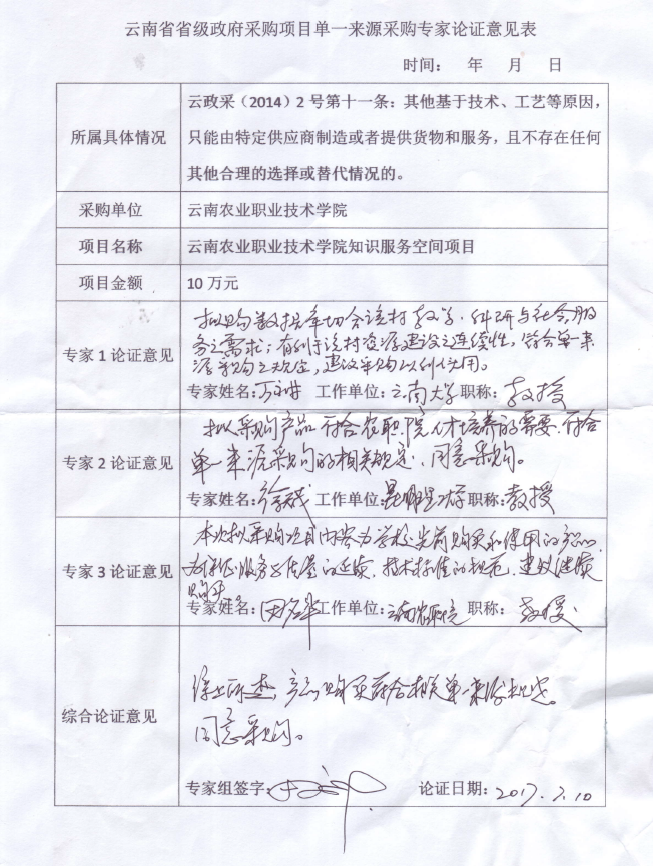 云南省省级政府采购项目单一来源采购专家论证意见表
时间： 年 月 日
所属具体情况
云政采（2014）2 号第十一条：其他基于技术、工艺等原因，
只能由特定供应商制造或者提供货物和服务，且不存在任何
其他合理的选择或替代情况的。
采购单位
云南农业职业技术学院
项目名称
云南农业职业技术学院知识服务空间项目
项目金额
10 万元
专家 1 论证意见
拟购数据库切合该校教学、科研与社会服
务之需求；有利于该校资源建设之连续性，符合单一来
源采购之规定，建议采购以利使用。
专家姓名: 工作单位:云南大学 职称: 教授
专家 2 论证意见
拟采购产品符合农职院人才培养的需要，符合
单一来源采购的相关规定，同意采购。
专家姓名: 工作单位:昆明理工大学 职称:教授
专家 3 论证意见
本次拟采购项目内容为学校先前购买和使用的产品，
为保证服务与质量的延续，技术标准的规范，建议继续
购买
专家姓名: 工作单位:云南农职院 职称: 教授
综合论证意见
综上所述，产品购买符合相关单一来源规定。
同意采购。
专家组签字: 论证日期: 2017.7.10